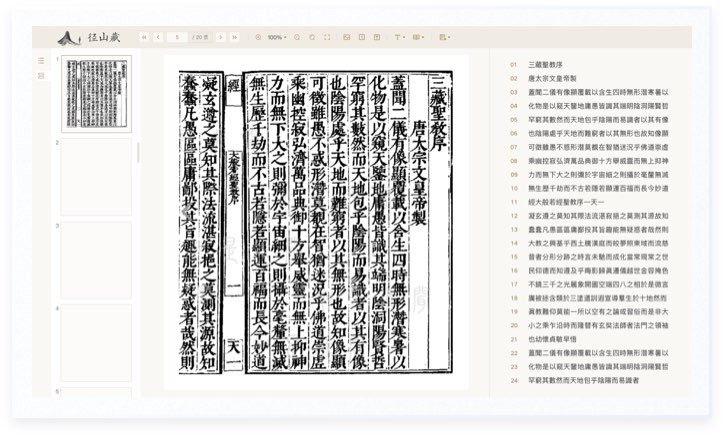 径山藏
5
/ 20 页
100%
1
2
3
4
5
三藏聖教序
唐太宗文皇帝製
蓋聞二儀有像顯覆載以含生四時無形潛寒暑以
化物是以窺天鑒地庸愚皆識其端明陰洞陽賢哲
罕窮其數然而天地包乎陰陽而易識者以其有像
也陰陽處乎天地而難窮者以其無形也故知像顯
可徵雖愚不惑形潛莫覩在智猶迷況乎佛道崇虛
乘幽控寂弘濟萬品典御十方舉威靈而無上抑神
力而無下大之則彌於宇宙細之則攝於毫釐無滅
無生歷千劫而不古若隱若顯運百福而長今妙道
經 大般若經聖教序 一 天一
凝玄遵之莫知其際法流湛寂挹之莫測其源故知
蠢蠢凡愚區區庸鄙投其旨趣能無疑惑者哉然則
01 三藏聖教序
02 唐太宗文皇帝製
03 蓋聞二儀有像顯覆載以含生四時無形潛寒暑以
04 化物是以窺天鑒地庸愚皆識其端明陰洞陽賢哲
05 罕窮其數然而天地包乎陰陽而易識者以其有像
06 也陰陽處乎天地而難窮者以其無形也故知像顯
07 可徵雖愚不惑形潛莫觀在智猶迷況乎佛道崇虛
08 乘幽控寂弘濟萬品典御十方舉威靈而無上抑神
09 力而無下大之則彌於宇宙細之則攝於毫釐無滅
10 無生歷千劫而不古若隱若顯運百福而長今妙道
11 經大般若經聖教序一天一
12 凝玄遵之莫知其際法流湛寂挹之莫測其源故知
13 蠢蠢凡愚區區庸鄙投其旨趣能無疑惑者哉然則
14 大教之興基乎西土騰漢庭而皎夢照東域而流慈
15 昔者分形分跡之時言未馳而成化當常現常之世
16 民仰德而知遵及乎晦影歸真遷儀越世金容掩色
17 不鏡三千之光麗象開圖空端四八之相於是微言
18 廣被拯含類於三塗遺訓遐宣導羣生於十地然而
19 真教難仰莫能一所以空有之論或習俗而是非大
20 小之乘乍沿時而隆替有玄奘法師者法門之領袖
21 也幼懷貞敏早悟
22 蓋聞二儀有像顯覆載以含生四時無形潛寒暑以
23 化物是以窺天鑒地庸愚皆識其端明陰洞陽賢哲
24 罕窮其數然而天地包乎陰陽而易識者